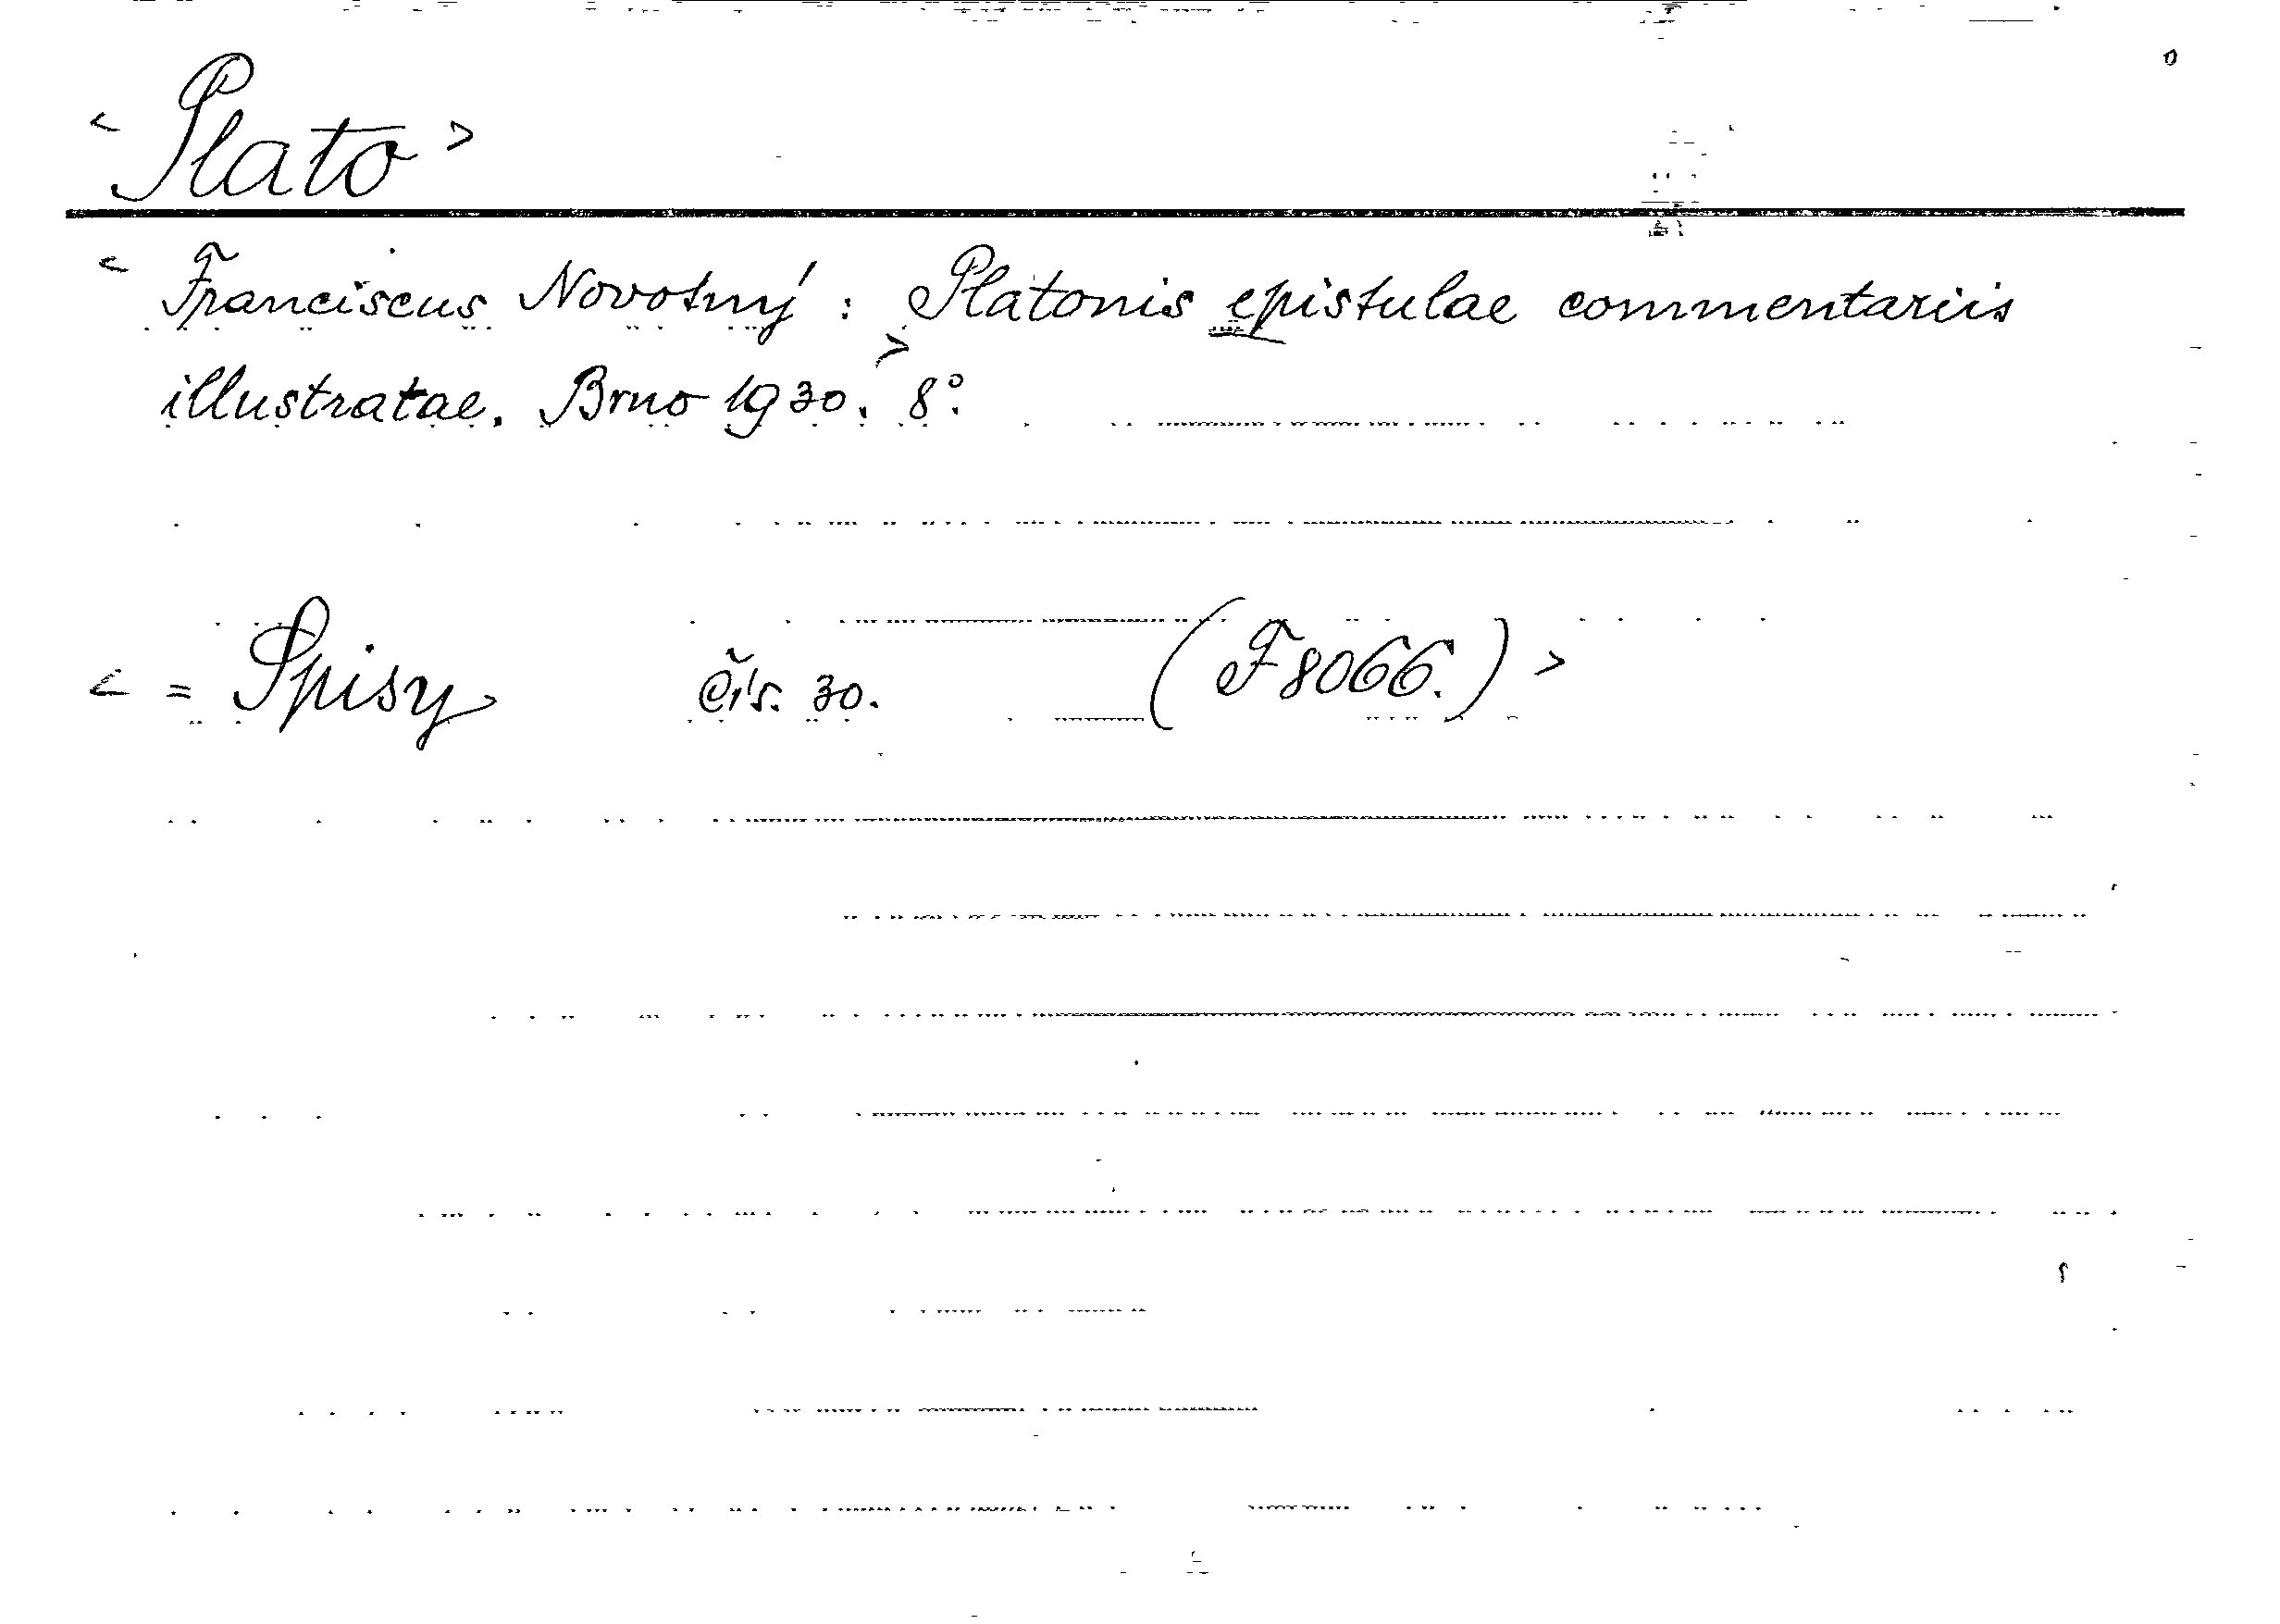 < Plato >
< Franciscus Novotný : Platonis epistulae commentariis
illustratae. Brno 1930. > 8°.
< = Spisy čís. 30. (F 8066.) >